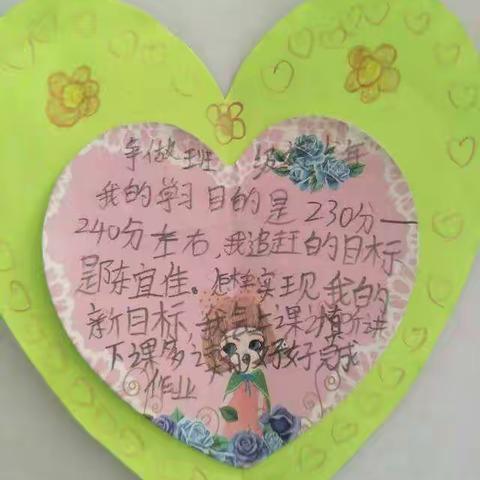 争做班级 年
我的学习目的是230分—
240分左右,我追赶的目标
是陈宜佳。怎样实现我的
新目标,我早上课慎听讲
下课多读 好好完成
作业